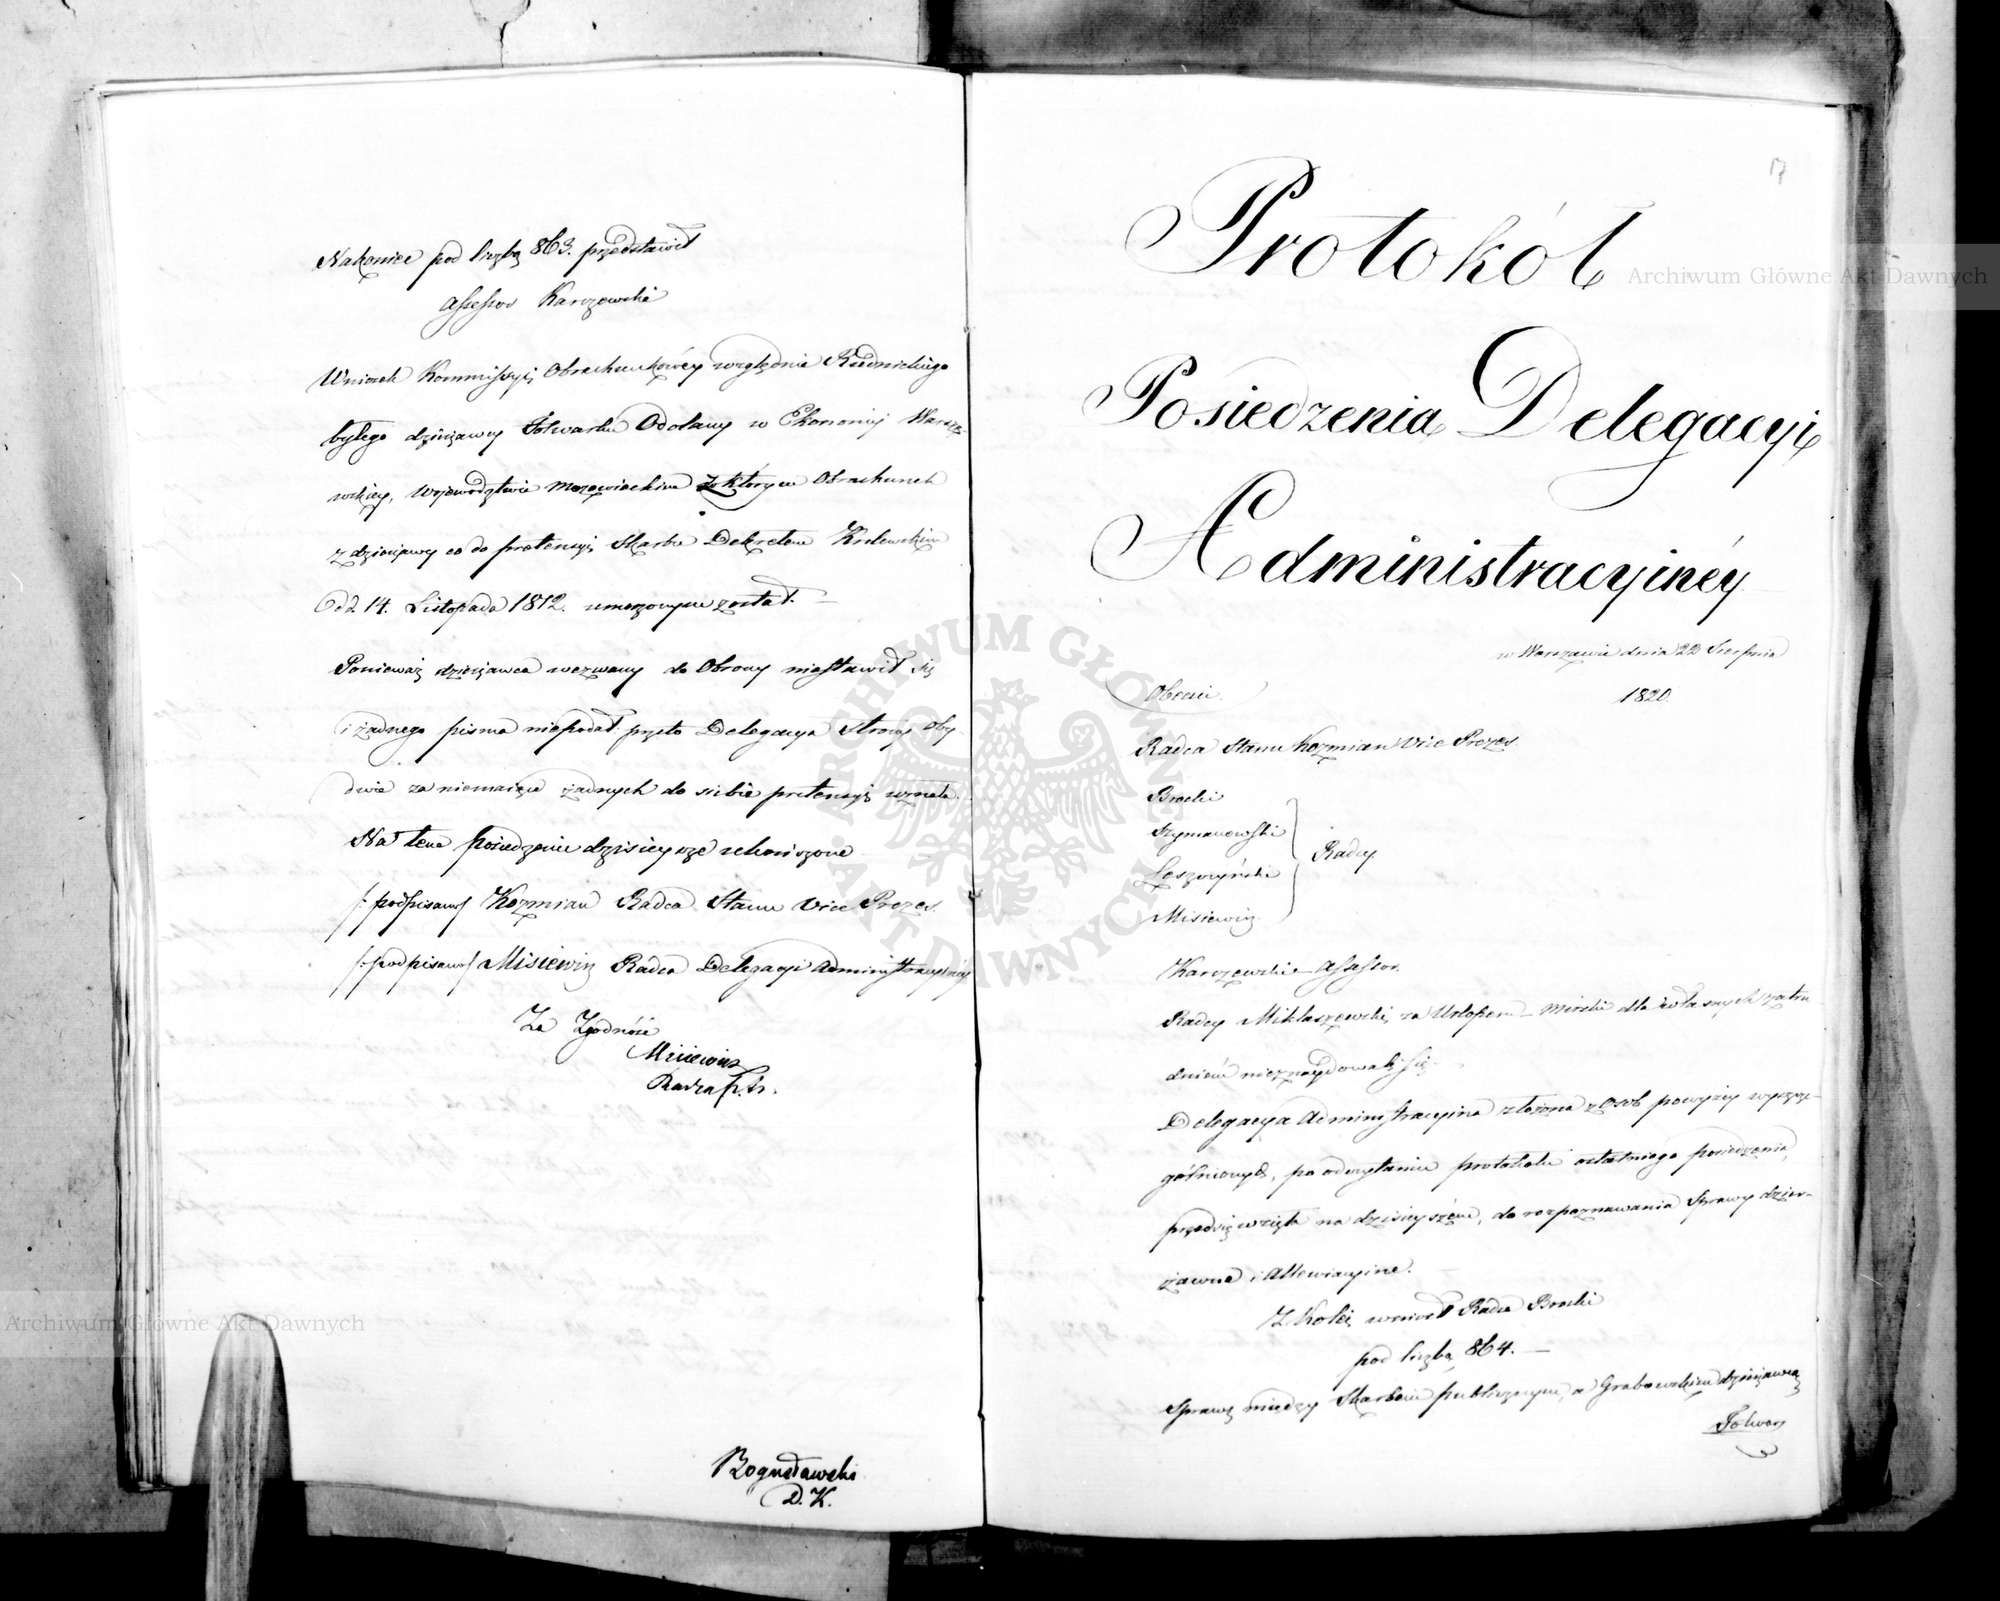 Nakoniec pod liczbą 863. przedstawił
Assessor Karczewski
Wniosek Kommissyi Obrachunkowéy względnie Rudnickiego
byłego dzierżawcy Folwarku Odolany w Ekonomij Warsza-
wskiey, Województwie Mazowieckim z którym Obrachunek
z dzierżawy co do pretensyi Skarbu Dekretem Królewskim
Od d. 14. Listopada 1812. umorzonym został. —
Ponieważ dzierżawca wezwany do Obrony niestawił się
i żadnego pisma niepodał przeto Delegacya Strony Oby
dwie za niemaiące żadnych do siebie pretensyi uznała.
Na tem posiedzenie dzisieysze ukończone
/: podpisano/ Kozmian Radca Stanu Vice Prezes.
/: podpisano/ Misiewicz Radca Delegacyi Administracyiney
Za Zgodność
Misiewicz
Radca
Bogusławski
D. K.
17
Protokół
Posiedzenia Delegacyi
Administracyinéy
w Warszawie dnia 22 Sierpnia
1820.
Obecni.
Radca Stanu Kozmian Vice Prezes.
Brocki
Szymanowski
Leszczyński
Misiewicz
Radcy
Karczewski Assessor
Radcy Miklaszewski za Urlopem – Mirski dla własnych zatru
dnień nieznaydowali się. –
Delegacya Administracyina złożona z Osób powyżey wyszcze-
gólnionych, po odczytaniu protokołu ostatniego posiedzenia,
przedsięwzięła na dzisieyszém, do rozpoznawania Sprawy dzier-
żawne i Allewiacyine.
Z Kolei wniósł Radca Brocki
pod liczbą 864. —
Sprawę między Skarbem publicznym, a Grabowskim dzierżawcą
Folwar
Archiwum Główne Akt Dawnych
Archiwum Główne Akt Dawnych
ARCHIWUM GŁÓWNE AKT DAWNYCH